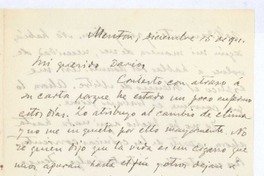 Menton, Diciembre 15 de 911.
Mi querido Darío:
Contesto con atraso a
su carta porque he estado un poco enfermo
estos días. Lo atribuyo al cambio de clima
y no me inquieta por ello mayormente. No
sé quién dijo que la vida es un cigarro que
unos apuran hasta el fin y otros dejan a